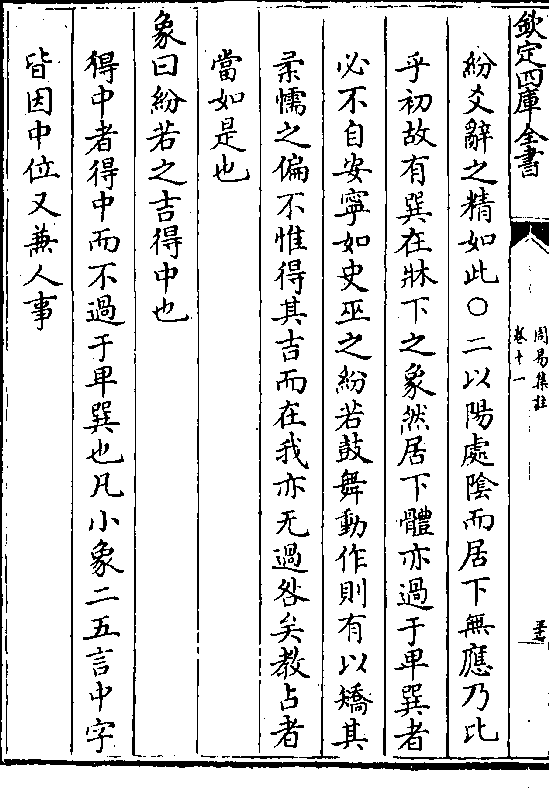 欽定四庫全書
周易集註
卷十一
紛爻辭之精如此○二以陽處陰而居下無應乃比
乎初故有巽在牀下之象然居下體亦過于卑巽者
必不自安寧如史巫之紛若鼓舞動作則有以矯其
柔懦之偏不惟得其吉而在我亦无過咎矣教占者
當如是也
象曰紛若之吉得中也
得中者得中而不過于卑巽也凡小象二五言中字
皆因中位又兼人事